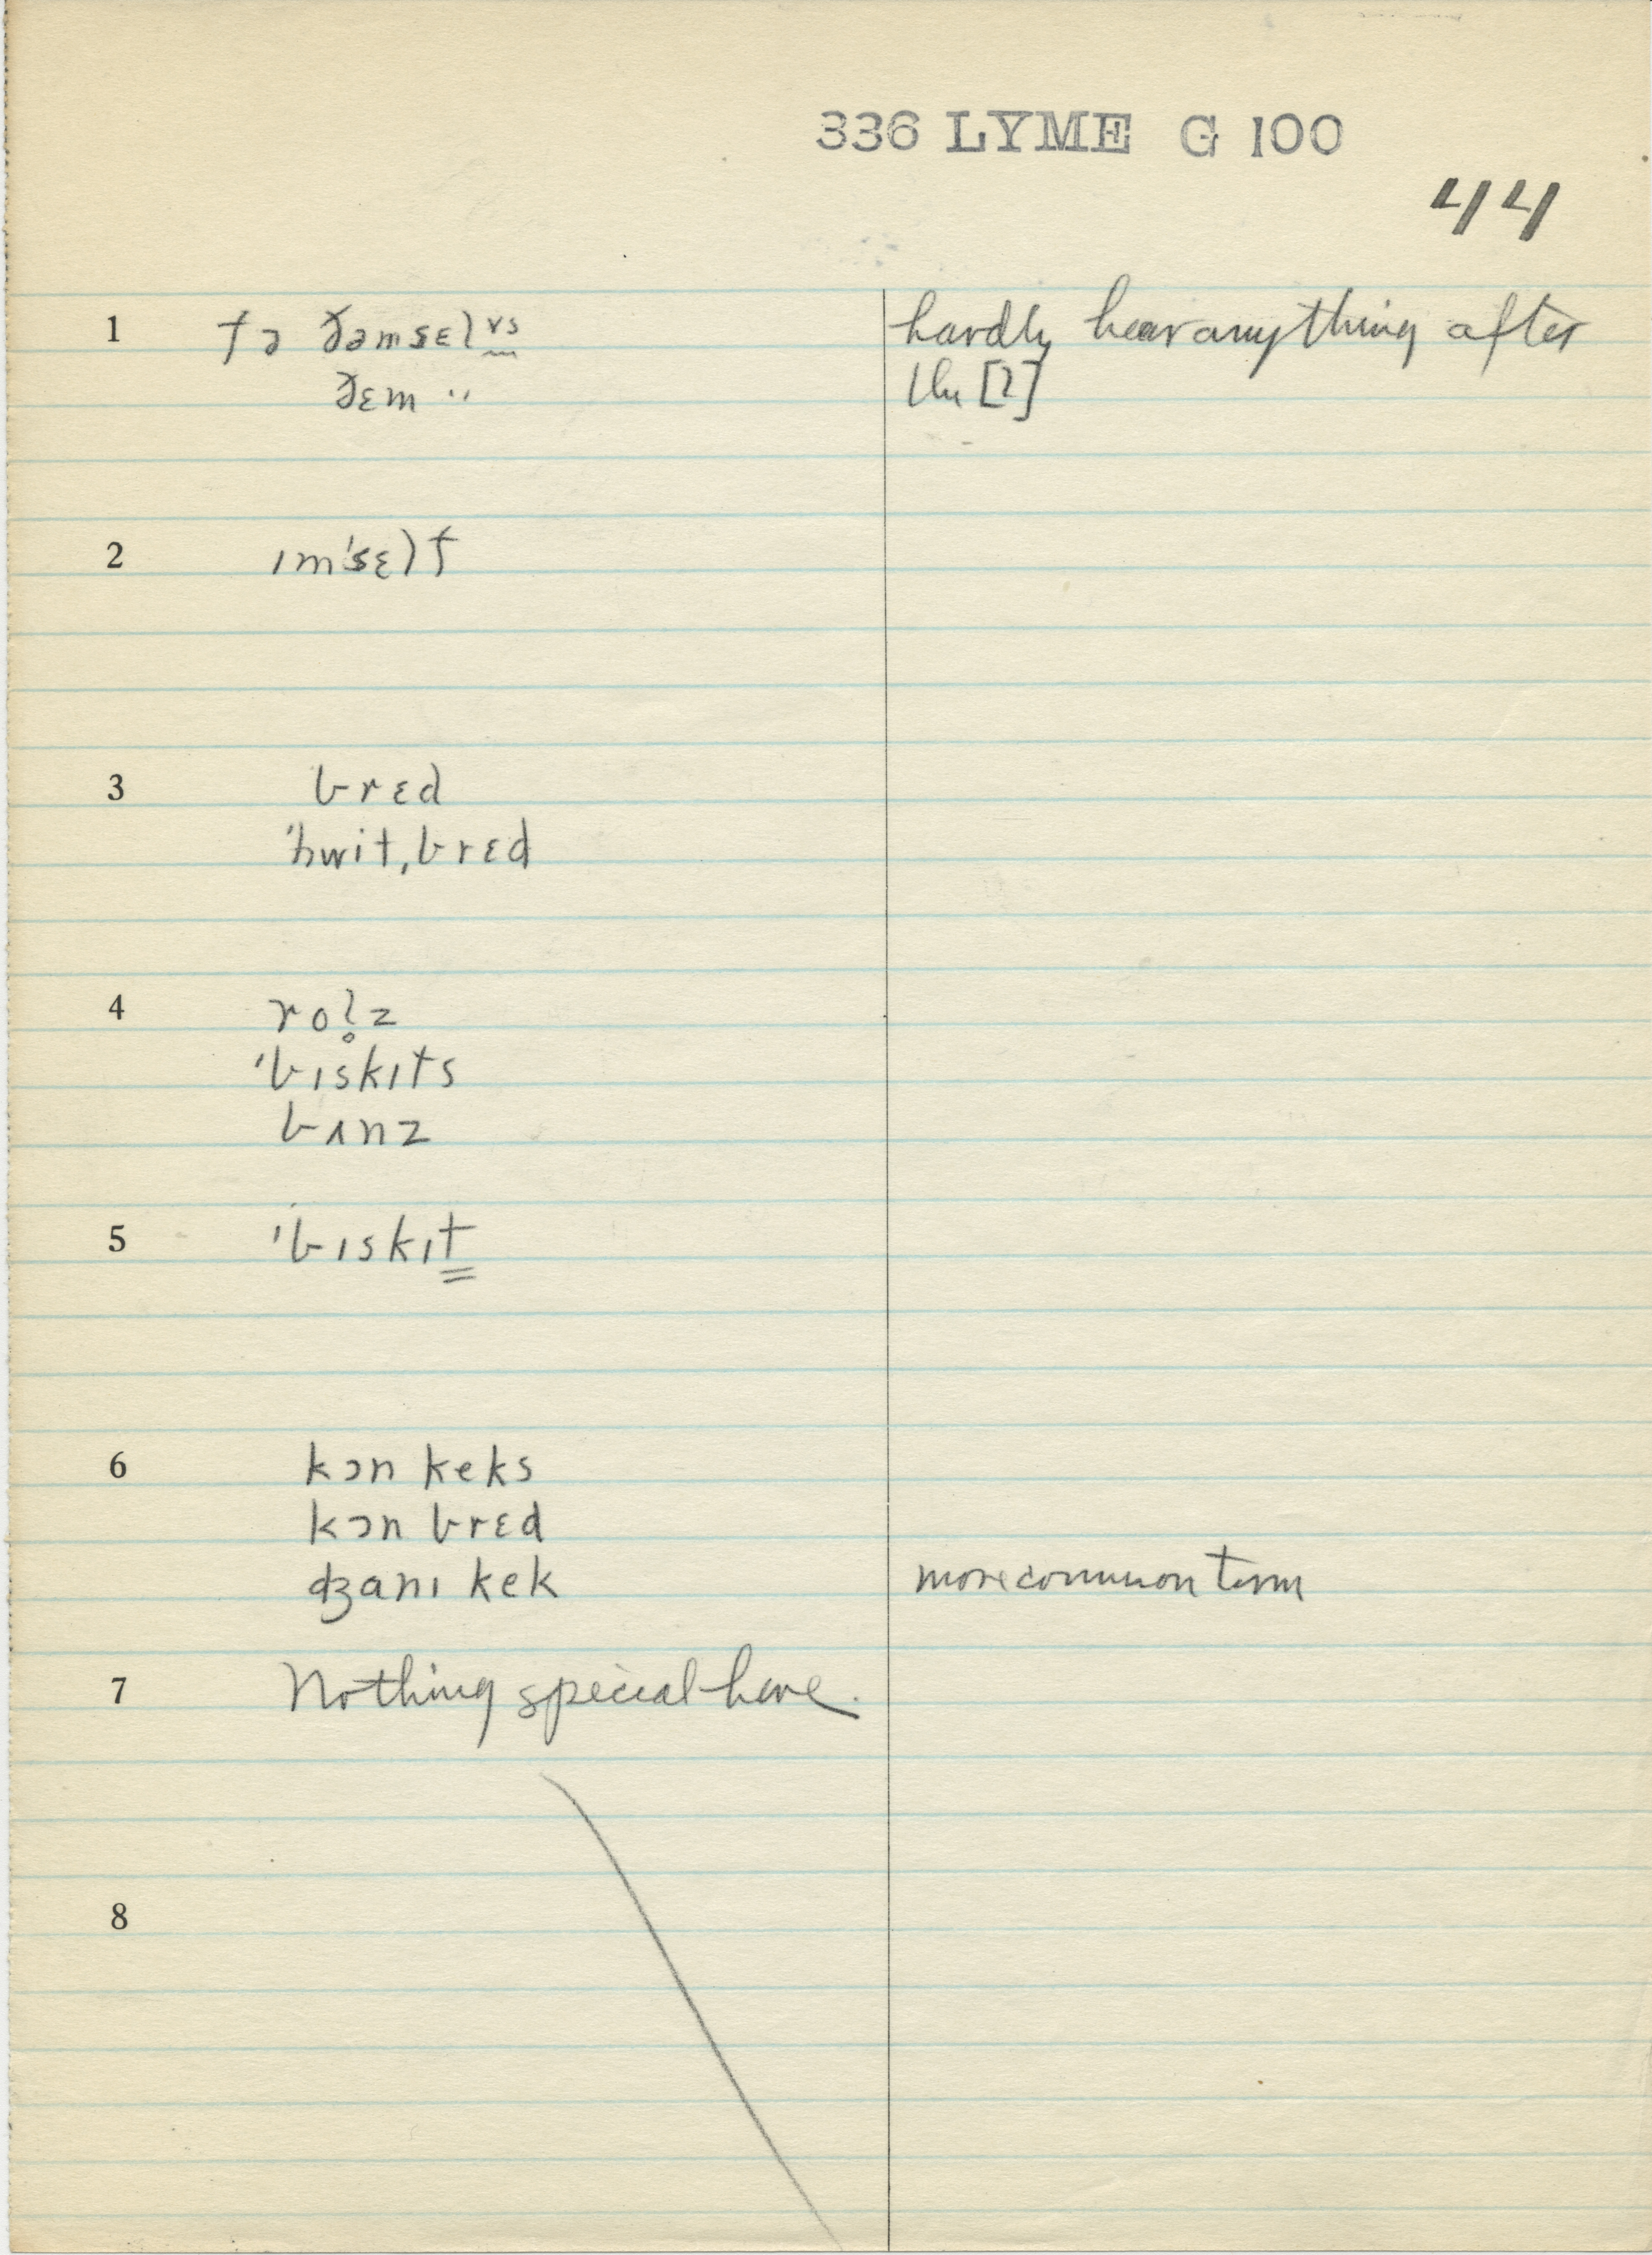 336 LYME G 100
44
1 fə ðəmsɛlvs hardly hear anything after
ðɛm " the [l]
2 ɪm'sɛlf
3 brɛd
'hwit,brɛd
4 rol̥z
'bɪskɪts
bʌnz
5 'bɪskɪt
6 kɔn keks
kɔn brɛd
ʤanɪ kek more common term
7 Nothing special here.
8